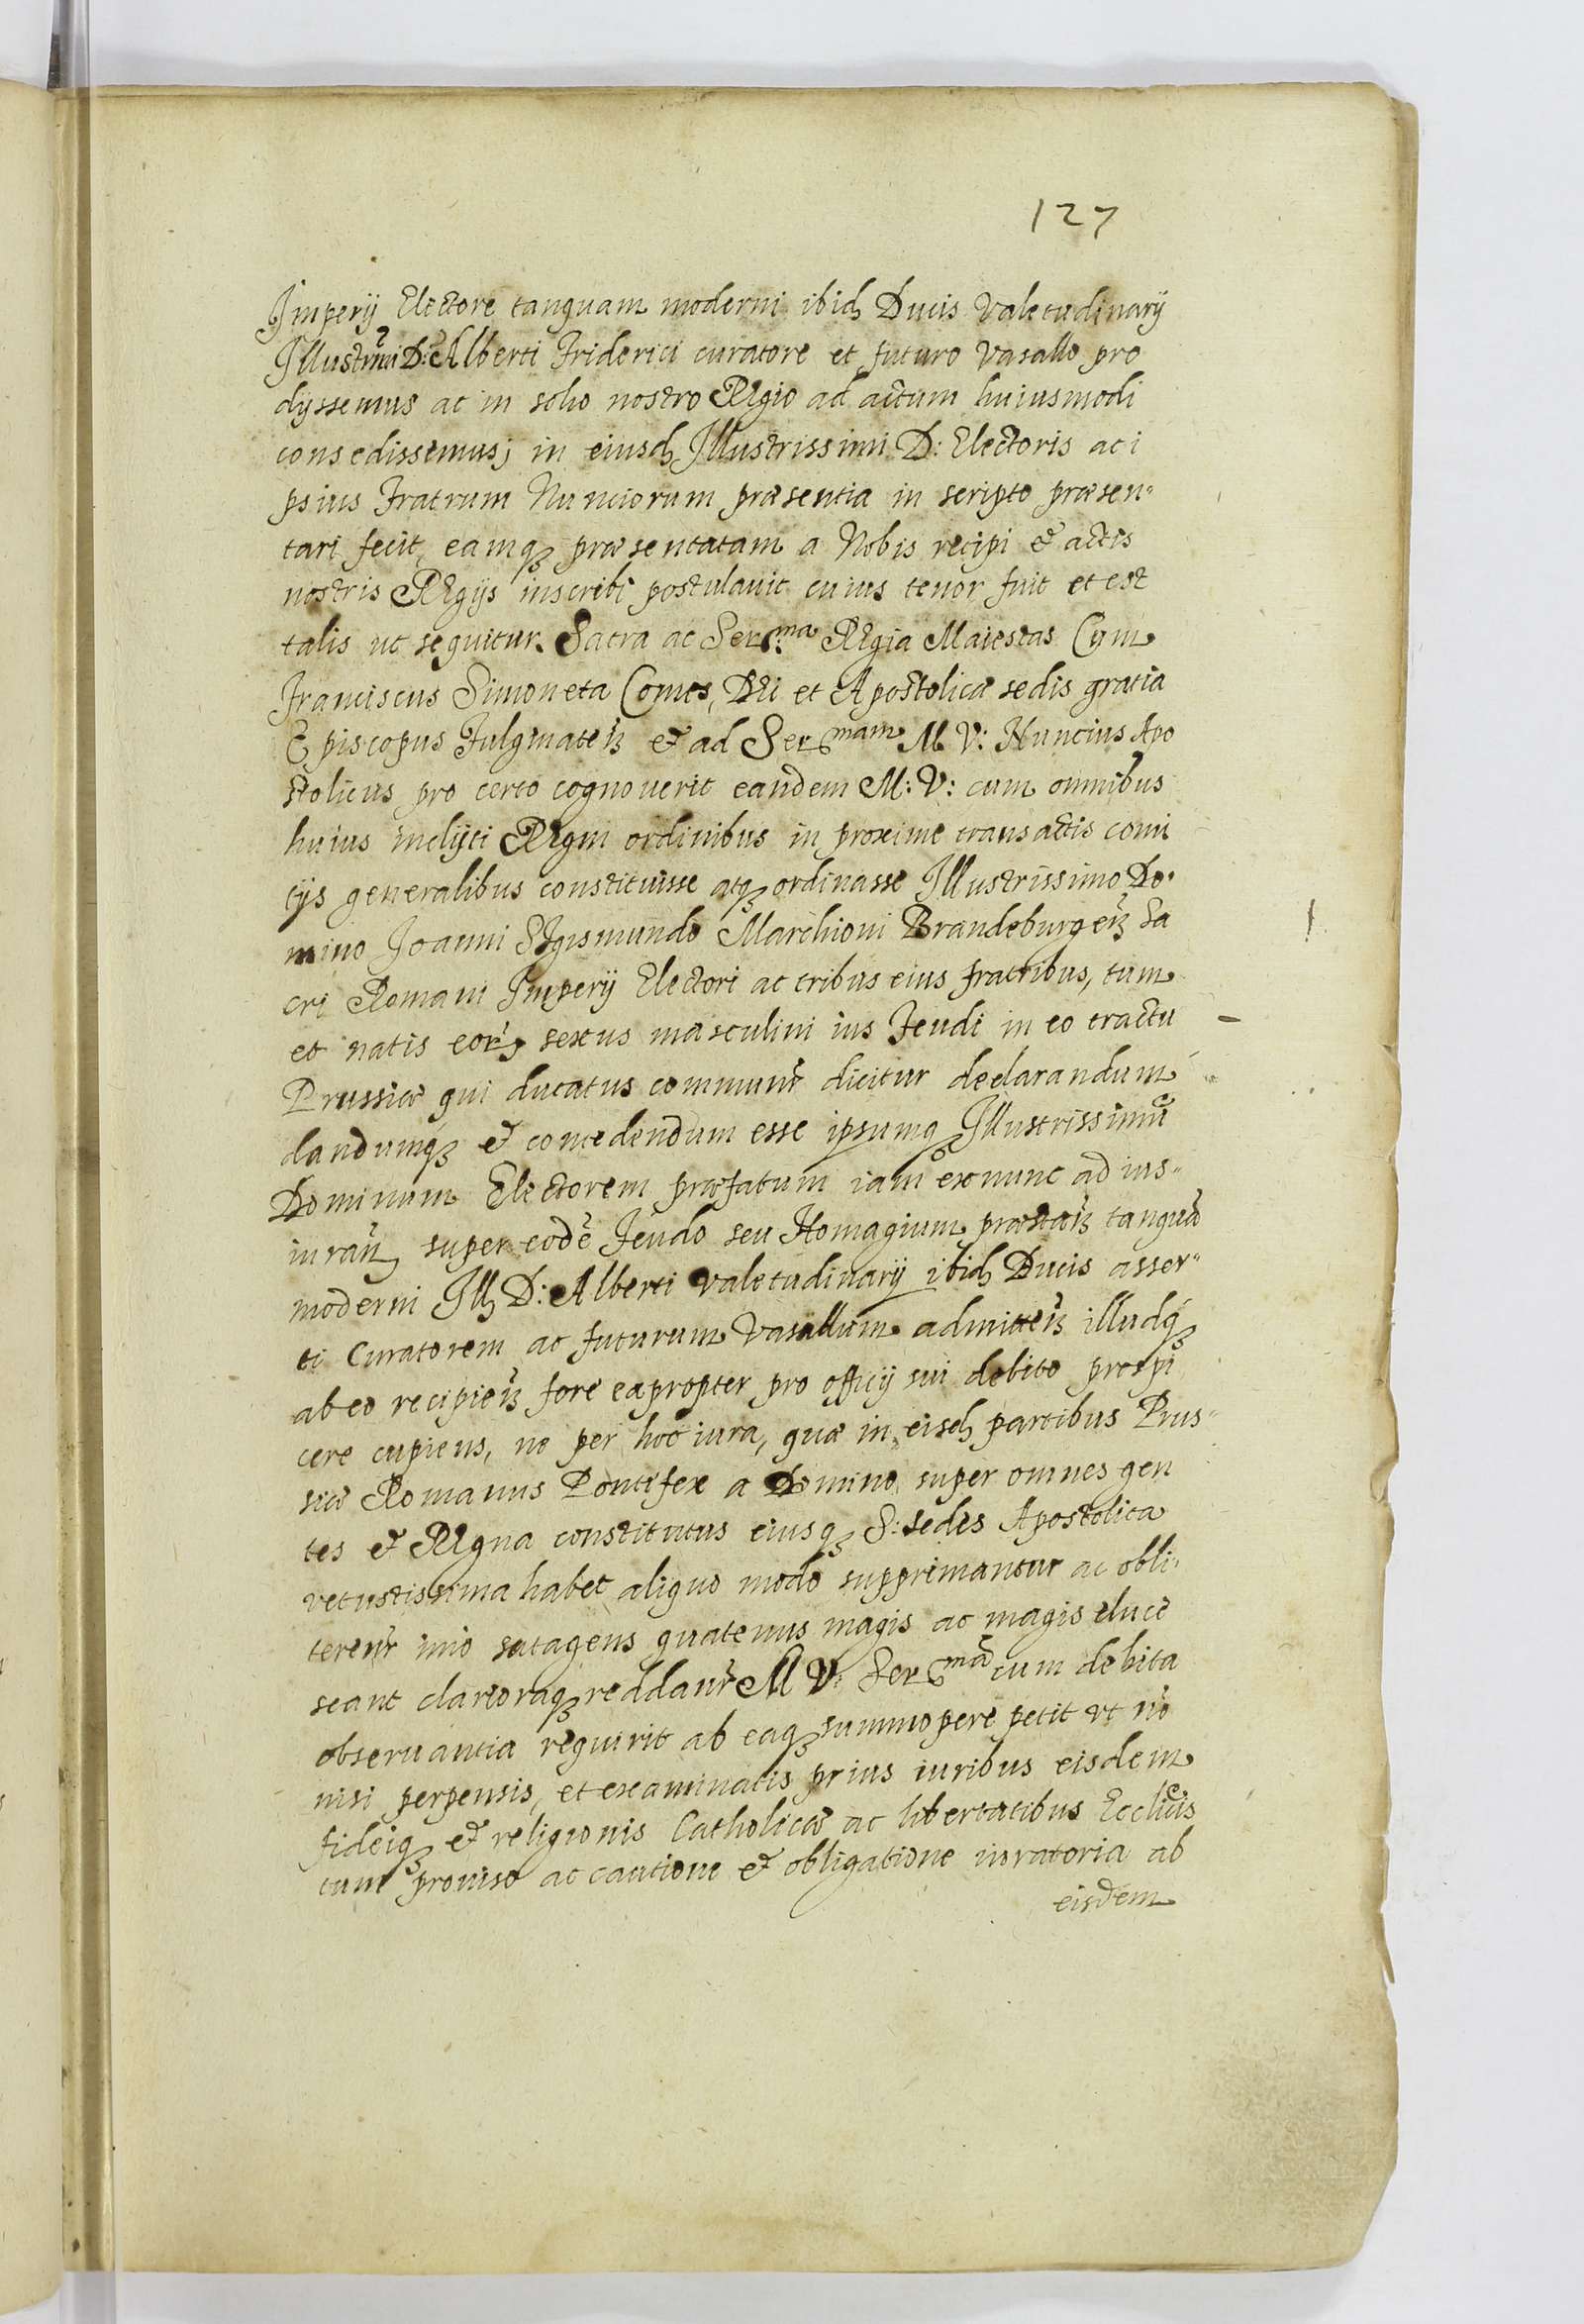 127
Imperÿ Electore tanquam moderni ibid Ducis Valetudinarÿ
Illustrmi D: Alberti Friderici curatore et futuro Vasallo pro
dÿssemus ac in solio nostro Regio ad actum huiusmodi
consedissemus; in eiusd Illustrissimi D: Electoris ac i
psius Fratrum Nunciorum præsentia in scripto præsen-
tari fecit, eamq præsentatam a Nobis recipi et actis
nostris Regÿs inscribi postulavit cuius tenor fuit et est
talis ut sequitur. Sacra ac Ser:ma Regia Maiestas Cum
Franciscus Simoneta Comes, Dei et Apostolicæ sedis gratia
Episcopus Fulginateñ et ad Sermam M V: Nuncius Apo
stolicus pro certo cognoverit eandem M: V: cum omnibus
huius inclÿti Regni ordinibus in proxime transactis comi
tÿs generalibus constituisse atq ordinasse Illustrissimo Do-
mino Joanni Sigismundo Marchioni Brandeburgeñ Sa
cri Romani Imperÿ Electori ac tribus eius fratribus, tum
et natis eor sexus masculini ius Feudi in eo tractu
Prussiæ qui ducatus communr dicitur declarandum
dandumq et concedendum esse ipsumq Illustrissimũ
Dominum Electorem præfatum iam exnunc ad ius-
iurañ super eodẽ Feudo seu Homagium præstañ tanquã
moderni Ill D: Alberti valetudinarÿ ibid Ducis asser-
ti Curatorem ac futurum Vasallum admitteñ illudq
ab eo recipieñ fore eapropter pro officÿ sui debito prospi
cere cupiens, ne per hoc iura, quæ in eisd partibus Prus-
siæ Romanus Pontifex a Domino super omnes gen
tes et Regna constitutus eiusq S: sedes Apostolica
vetustissima habet aliquo modo supprimantur ac obli-
terenr imo satagens quatenus magis ac magis eluce
seant clarioraq reddanr M V: Sermã cum debita
observantia requirit ab eaq summopere petit ut nõ
nisi perpensis, et examinatis prius iuribus eisdem
fideiq et religionis Catholicæ ac libertatibus Ecclicis
cum proviso ac cautione et obligatione iuratoria ab
eisdem